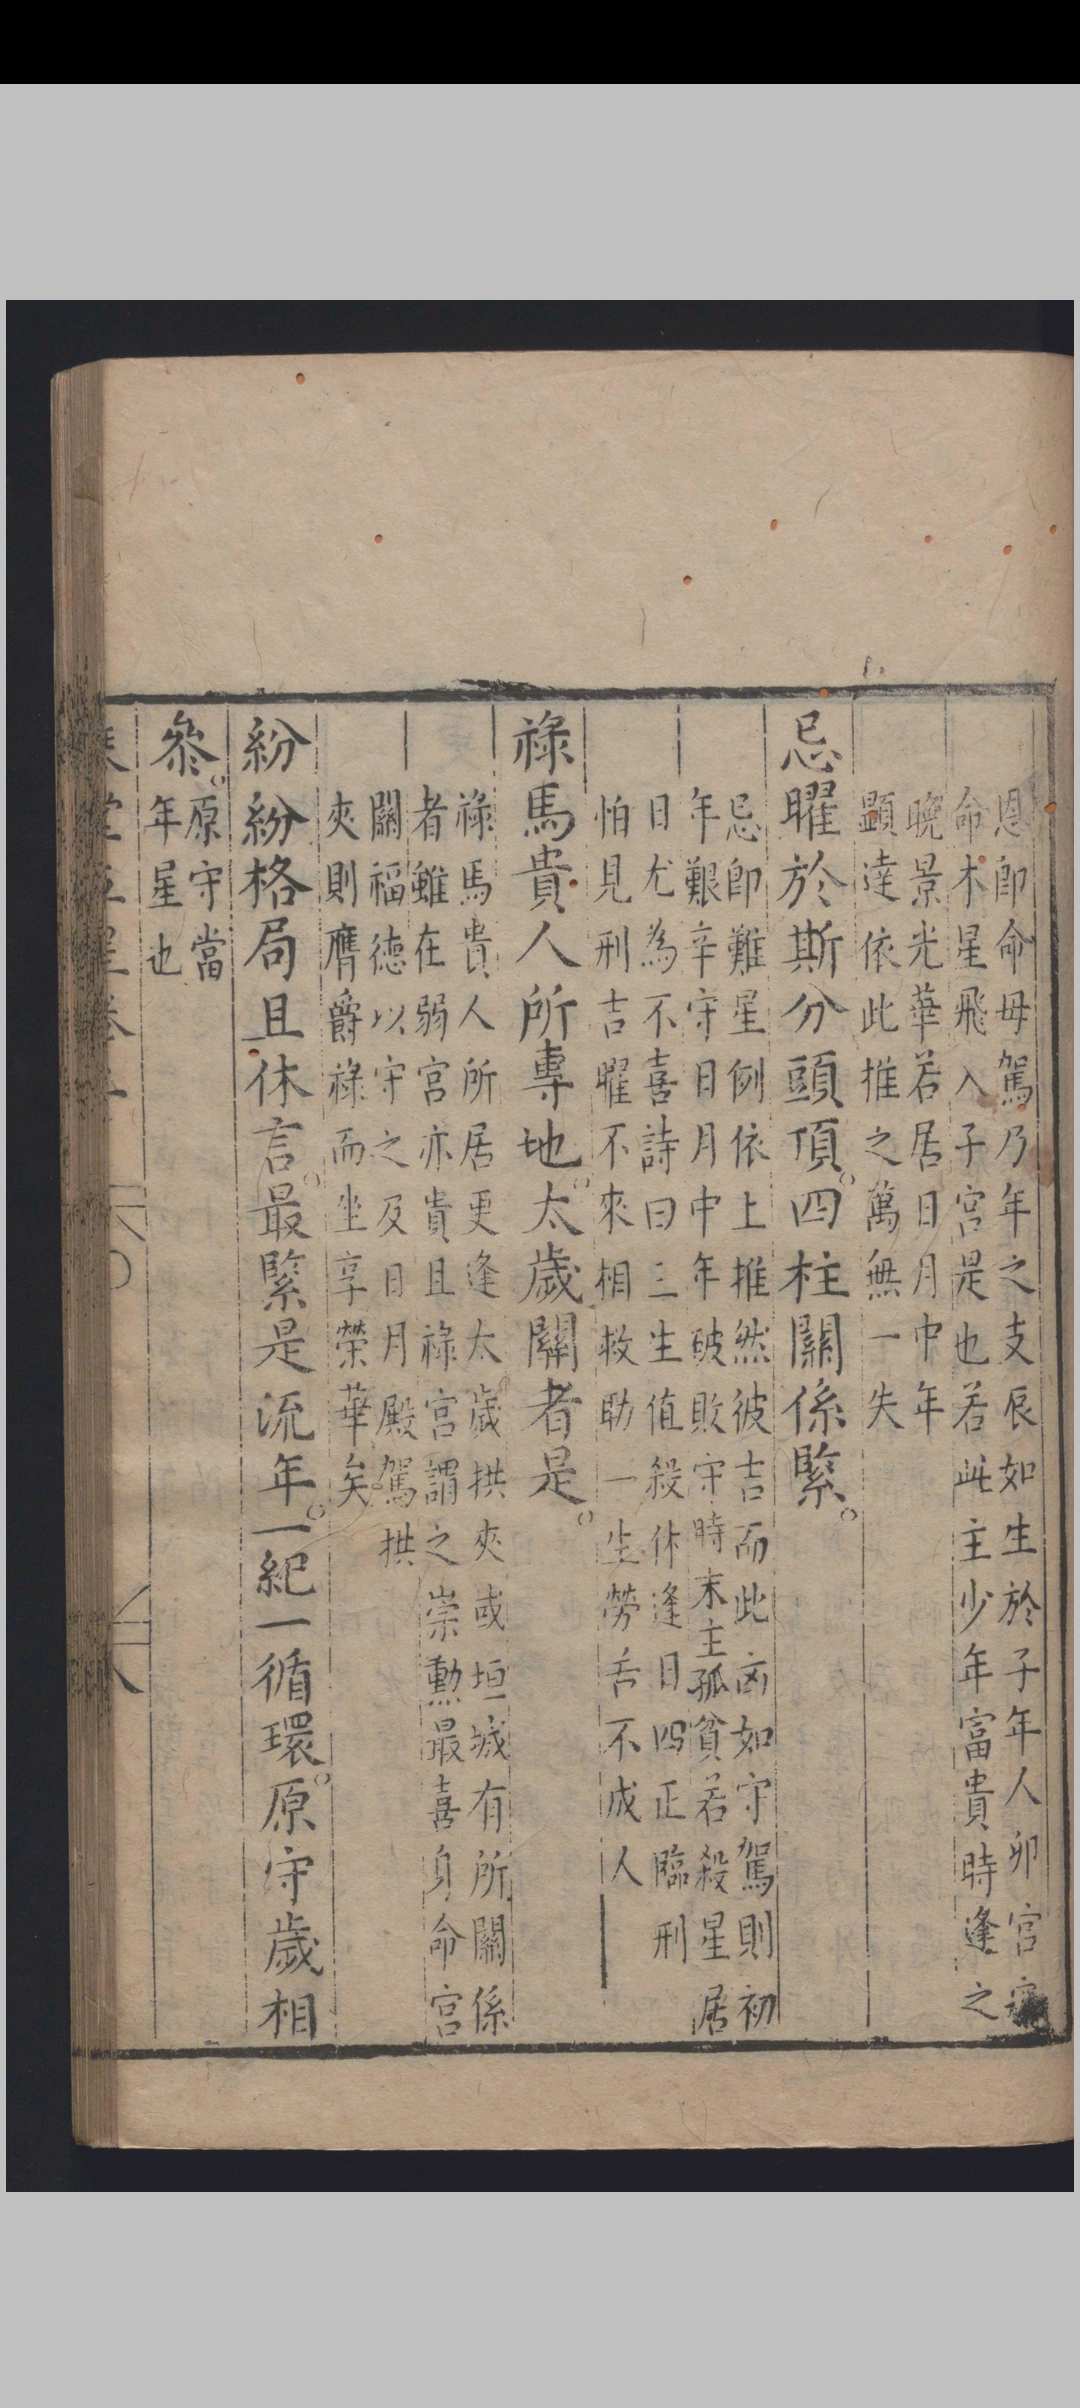 恩即命母駕乃年之支辰如生於子年人卯宮安
命木星飛入子宮是也若此主少年富貴時逢之
晚景光華若居日月中年
顯達依此推之萬無一失
忌曜於斯分頭頂。四柱關係緊。
忌即難星例依上推然彼吉而此凶如守駕則初
年艱辛守日月中年破敗守時末主孤貧若殺星居
日尤為不喜詩曰三生值殺休逢日四正臨刑
怕見刑吉曜不來相救助一生勞舌不成人
祿馬貴人所專地。太歲關者是。
祿馬貴人所居更逢太歲拱夾或垣城有所關係
者雖在弱宮亦貴且祿宮謂之崇勳最喜身命宮
關福德以守之及日月殿駕拱
夾則膺爵祿而坐享榮華矣
紛紛格局且休言。最緊是流年。一紀一循環。原守歲相
參。原守當
年星也